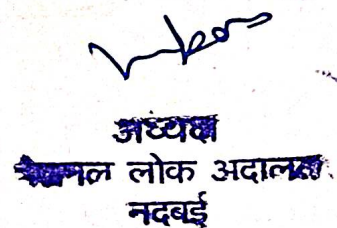 अध्यक्ष
लोक अदालत
नदबई